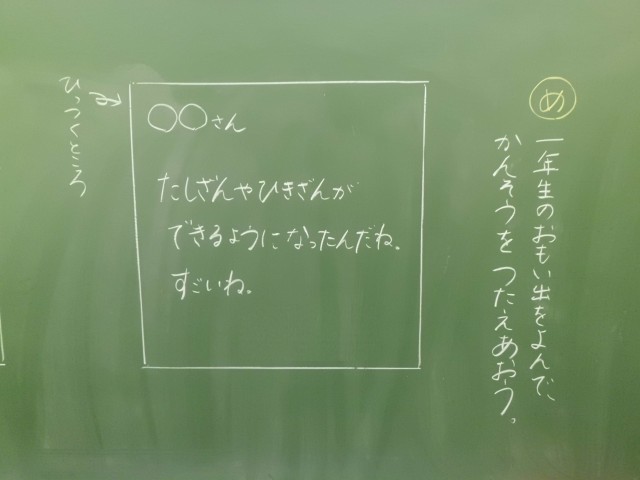 め
一年生のおもい出をよんで、
かんそうをつたえあおう。
ひっつくところ
○○さん
たしざんやひきざんが
できるようになったんだね。
すごいね。